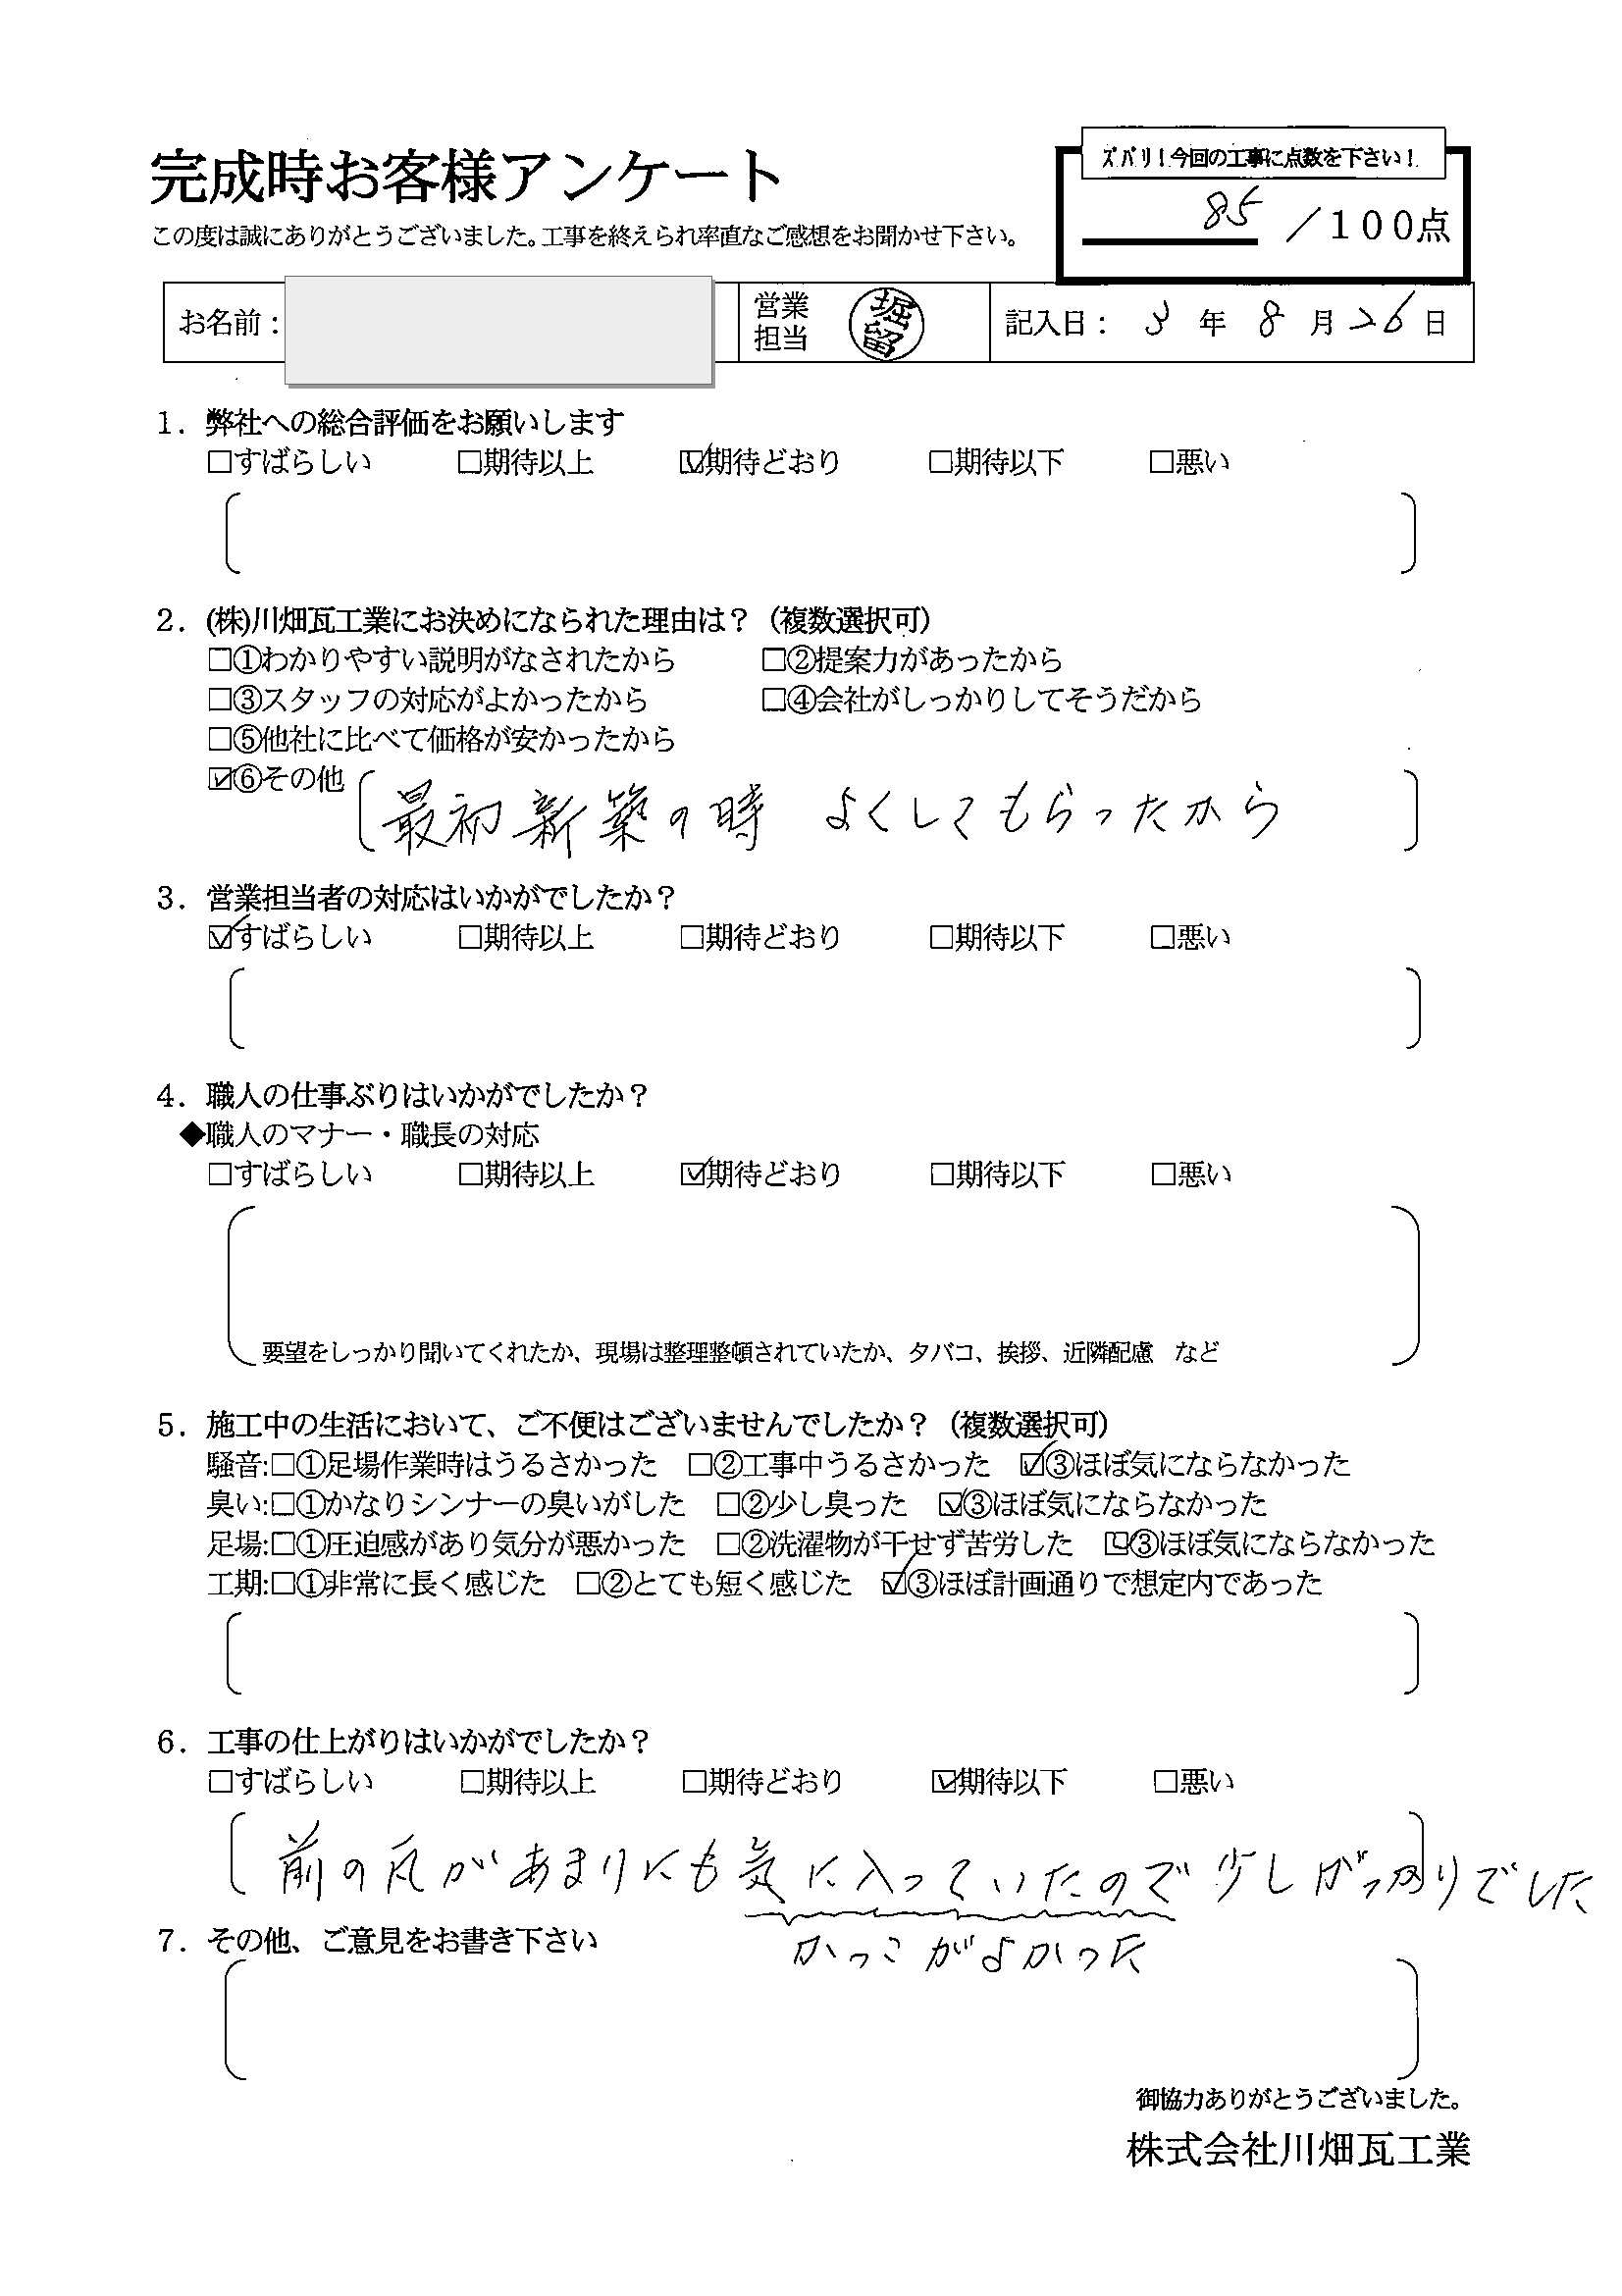 完成時お客様アンケート
この度は誠にありがとうございました。工事を終えられ率直なご感想をお聞かせ下さい。
ズバリ！今回の工事に点数を下さい！
85 ／100点
お名前： 営業担当 堀留 記入日： 3 年 8 月 26 日
1．弊社への総合評価をお願いします
□すばらしい □期待以上 ☑期待どおり □期待以下 □悪い
2．(株)川畑瓦工業にお決めになられた理由は？（複数選択可）
□①わかりやすい説明がなされたから □②提案力があったから
□③スタッフの対応がよかったから □④会社がしっかりしてそうだから
□⑤他社に比べて価格が安かったから
☑⑥その他 最初新築の時 よくしてもらったから
3．営業担当者の対応はいかがでしたか？
☑すばらしい □期待以上 □期待どおり □期待以下 □悪い
4．職人の仕事ぶりはいかがでしたか？
◆職人のマナー・職長の対応
□すばらしい □期待以上 ☑期待どおり □期待以下 □悪い
要望をしっかり聞いてくれたか、現場は整理整頓されていたか、タバコ、挨拶、近隣配慮 など
5．施工中の生活において、ご不便はございませんでしたか？（複数選択可）
騒音:□①足場作業時はうるさかった □②工事中うるさかった ☑③ほぼ気にならなかった
臭い:□①かなりシンナーの臭いがした □②少し臭った ☑③ほぼ気にならなかった
足場:□①圧迫感があり気分が悪かった □②洗濯物が干せず苦労した ☑③ほぼ気にならなかった
工期:□①非常に長く感じた □②とても短く感じた ☑③ほぼ計画通りで想定内であった
6．工事の仕上がりはいかがでしたか？
□すばらしい □期待以上 □期待どおり ☑期待以下 □悪い
前の瓦があまりにも気に入っていたので少しがっかりでした
かっこがよかった
7．その他、ご意見をお書き下さい
御協力ありがとうございました。
株式会社川畑瓦工業